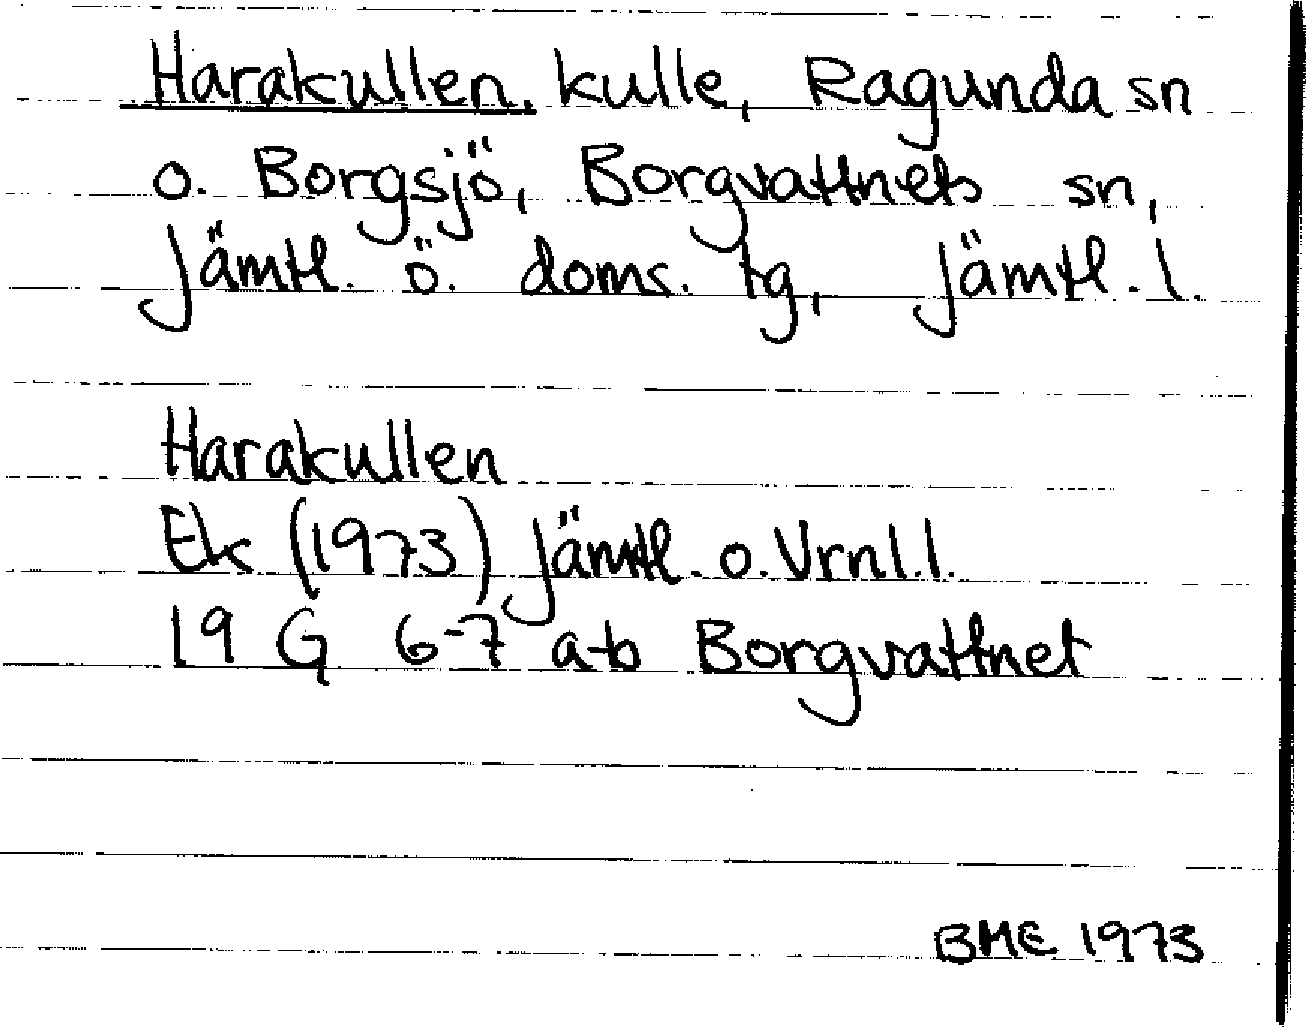 Harakullen, kulle, Ragunda sn
o. Borgsjö, Borgvattnets sn,
Jämtl. ö. doms. tg, Jämtl. l.
Harakullen
Ek (1973) Jämtl. o. Vrnl.l.
19 G 6-7 a-b Borgvattnet
BME 1973